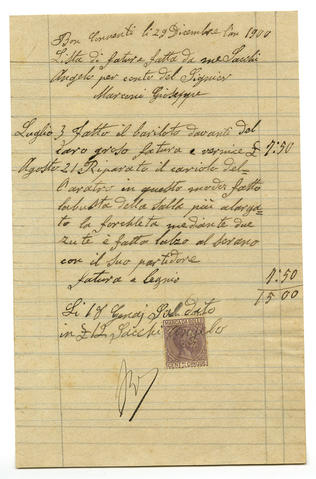 Bon Conventi li 29 Dicembre lan 1900
Lista di fature fatta da me Sacchi
Angelo per conto del Signier
Marconi Giuseppe
Luglio 3 fatto il bariloto davanti del
caro groso fatura e vernice £ 7:50
Agosto 21 Riparato il cariolo del
laratro in questo modo fatto
la busta della Salla più alarga
to la forcheta mediante due
e fatto lalzo al
con il suo partidore
fatura e legnio 7.50
15 00
Li 17 Genaj Saldato
in £ 12 Sacchi Angelo
MARCA DA BOLLO